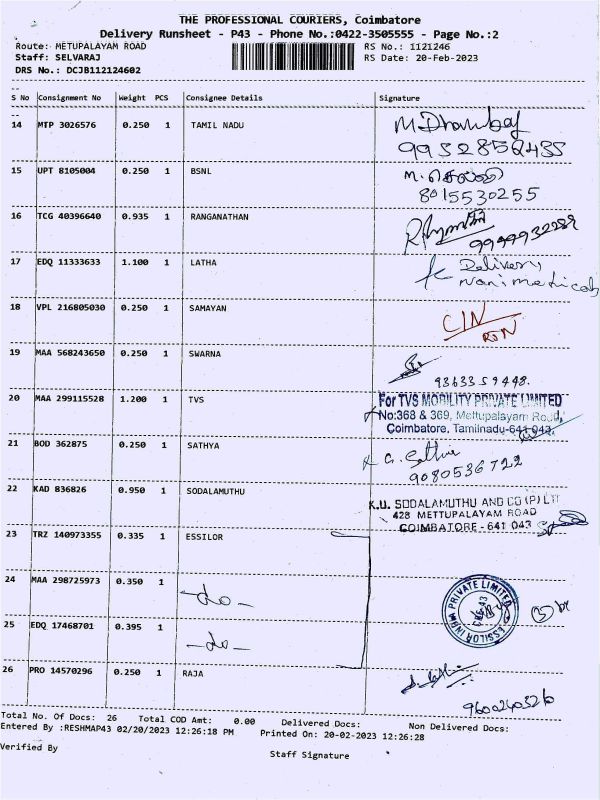 THE PROFESSIONAL COURIERS, Coimbatore
Delivery Runsheet - P43 - Phone No.:0422-3505555 - Page No.:2
Route: METUPALAYAM ROAD RS No.: 1121246
Staff: SELVARAJ RS Date: 20-Feb-2023
DRS No.: DCJB112124602
S No Consignment No Weight PCS Consignee Details Signature
14 MTP 3026576 0.250 1 TAMIL NADU
15 UPT 8105004 0.250 1 BSNL
8015530255
16 TCG 40396640 0.935 1 RANGANATHAN
17 EDQ 11333633 1.100 1 LATHA Delivery
18 VPL 216805030 0.250 1 SAMAYAN CIN
19 MAA 568243650 0.250 1 SWARNA
9363359448.
20 MAA 299115528 1.200 1 TVS For TVS MOBILITY PRIVATE LIMITED
No:368 & 369, Mettupalayam Road,
Coimbatore, Tamilnadu-641 043.
21 BOD 362875 0.250 1 SATHYA
9080536722
22 KAD 836826 0.950 1 SODALAMUTHU K.U. SODALAMUTHU AND CO (P) LTD
428 METTUPALAYAM ROAD
COIMBATORE - 641 043
23 TRZ 140973355 0.335 1 ESSILOR
24 MAA 298725973 0.350 1 -do-
ESSILOR INDIA PRIVATE LIMITED
25 EDQ 17468701 0.395 1 -do-
26 PRO 14570296 0.250 1 RAJA
Total No. Of Docs: 26 Total COD Amt: 0.00 Delivered Docs: Non Delivered Docs:
Entered By :RESHMAP43 02/20/2023 12:26:18 PM Printed On: 20-02-2023 12:26:28
Verified By Staff Signature